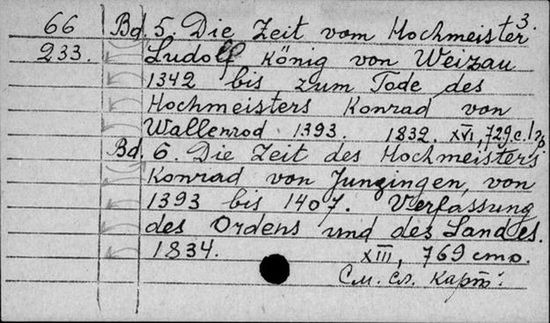 +3.
66 Bd. 5. Die Zeit vom Hochmeister
233. Ludolf König von Weizau
1342 bis zum Tode des
Hochmeisters Konrad von
Wallenrod 1393. 1832. XVI, 729 c.
Bd. 6. Die Zeit des Hochmeisters
Konrad von Jungingen, von
1393 bis 1407. Verfassung
des Ordens und des Landes.
1834. XIII, 769 стр.
См. сл. карт.